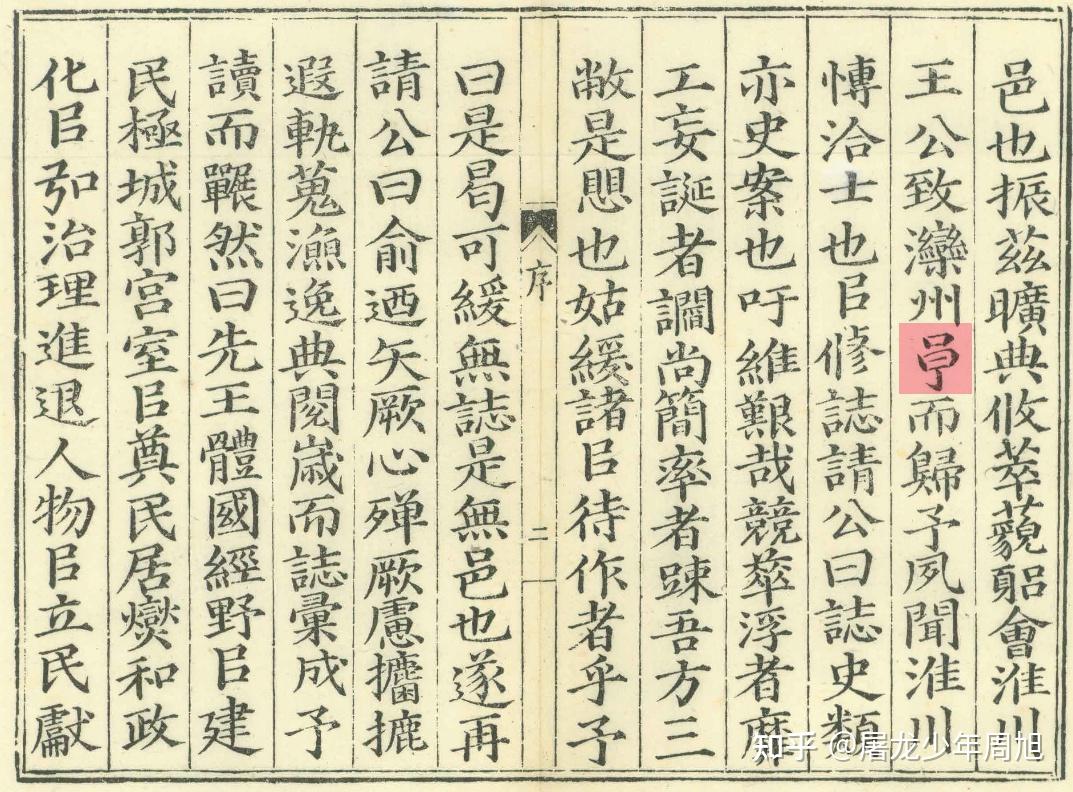 邑也振茲曠典攸萃藐䫒會淮川
王公致灤州而歸予夙聞淮川
愽洽士也㠯修誌請公曰誌史類
亦史案也吁維艱哉競萃浮者靡
工妄誕者讕尚簡率者踈吾方三
敝是思也姑緩諸㠯待作者乎予
曰是曷可緩無誌是無邑也遂再
請公曰俞迺矢厥心殫厥慮攟摭
遐軌蒐漁逸典閱歲而誌彙成予
讀而囅然曰先王體國經野㠯建
民極城郭宮室㠯奠民居爕和政
化㠯弘治理進退人物㠯立民獻
序
二
知乎 @屠龙少年周旭